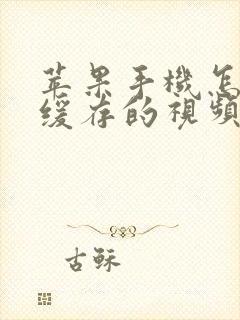 苹果手機怎
缓存的視頻
古稣